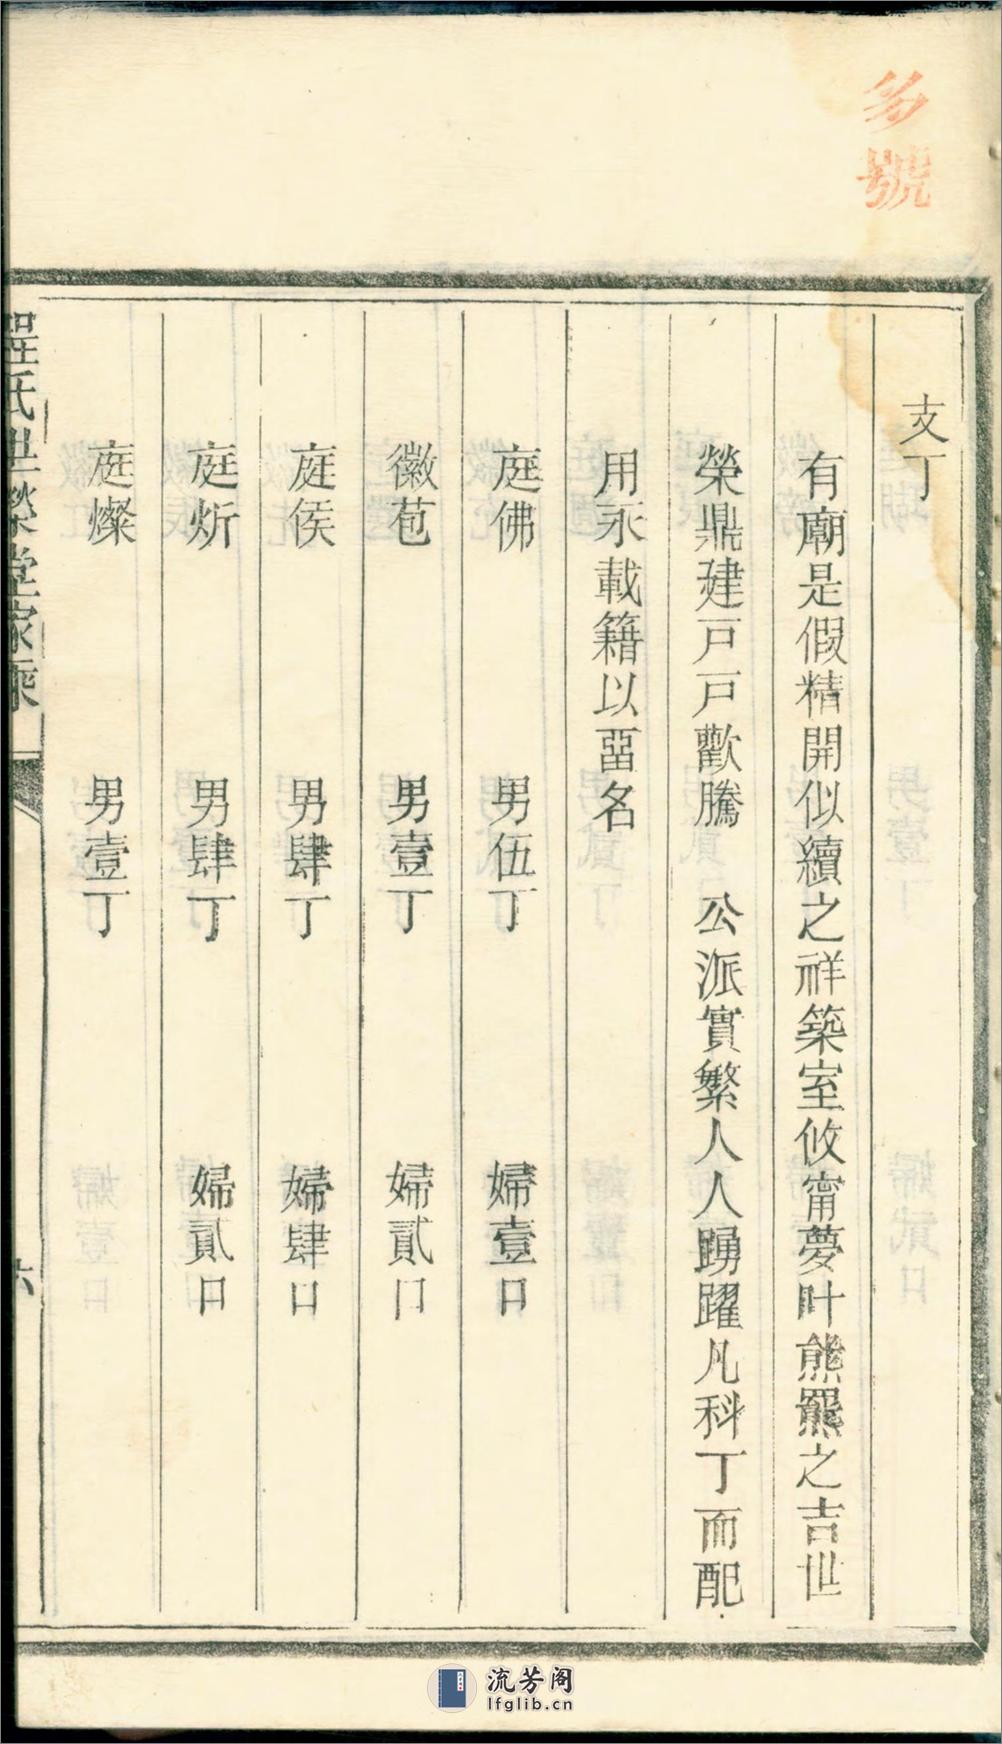 號
支丁
有廟是假精開似續之祥築室攸甯夢叶熊羆之吉世
榮鼎建戸戸歡騰　公派實繁人人踴躍凡科丁而配
用永載籍以畱名
庭佛　男伍丁　婦壹口
徽苞　男壹丁　婦貳口
庭俟　男肆丁　婦肆口
庭炘　男肆丁　婦貳口
庭燦　男壹丁
程氏世榮堂家乘　六
流芳阁
lfglib.cn